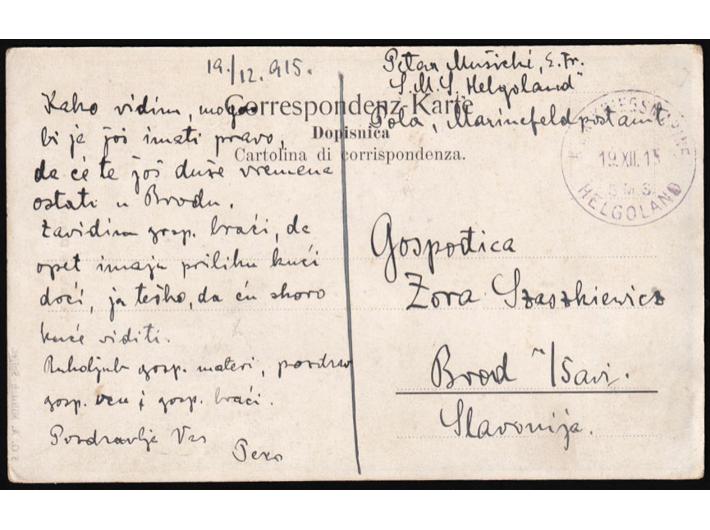 19./12. 915.
Kako vidim, mogao
bi je još imati pravo,
da će te još duše vremena
ostati u Brodu.
Zavidim gosp. braći, da
opet imaju priliku kući
doći, ja teško, da ću skoro
kuće viditi.
Rukoljub gosp. materi, pozdrav
gosp. i gosp. braći.
Pozdravlja Vas
Pero
Correspondenz-Karte
Dopisnica
Cartolina di corrispondenza.
Petar Mušicki,
S.M.S. Helgoland"
Pola, Marinefeldpostamt
19.XII.15
S.M.S.
HELGOLAND
Gospođica
Zora Szaszkiewicz
Brod "/Savi.
Slavonija.